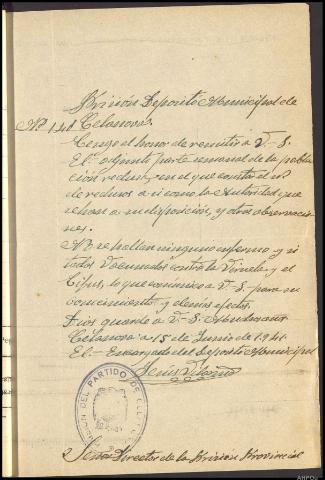 Prisión Deposito Municipal de
Nº 141 Celanova.
Tengo el honor de remitir a V. S.
El adjunto parte semanal de la pobla
ción reclusa en el que consta el nº
de reclusos asi como la Autoridad que
rehan a su disposición, y otras observacio
nes.
No se hallan ninguno enfermo y si
todos vacunados contra la Viruela y el
Tifus, lo que comunico a V. S. para su
conocimiento y demás efectos.
Dios guarde a V. S. muchos años
Celanova a 15 de Junio de 1941
El Encargado del Deposito Municipal
PRISION DEL PARTIDO DE
Señor Director de la Prisión Provincial